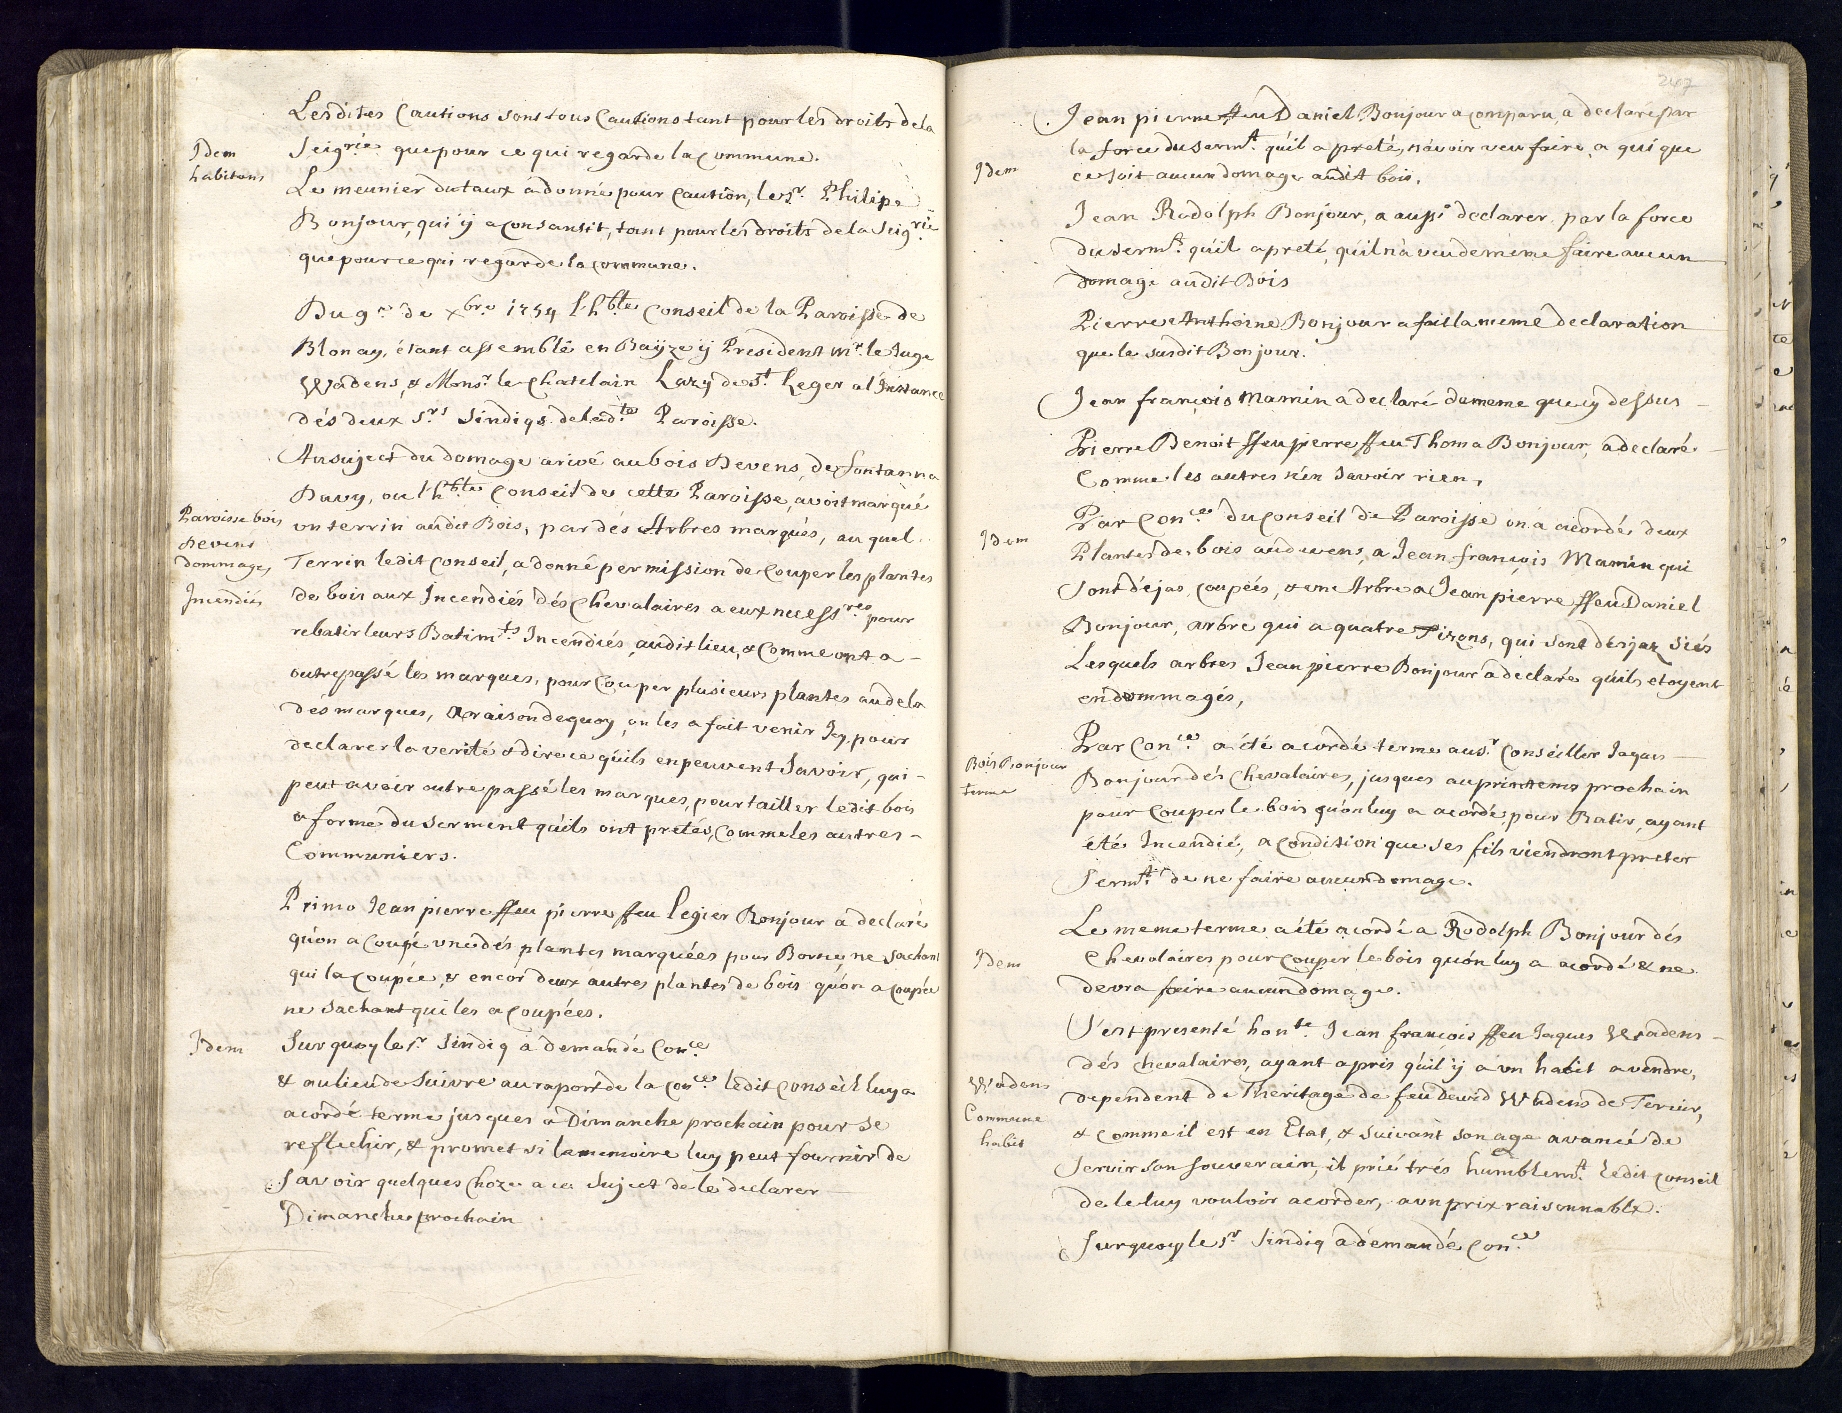 Lesdites Cautions sont tous Cautions tant pour les droits dela
Idem
habitans
Seigrie. que pour ce qui regarde la Commune.
Le meunier dutaux à donné pour Caution, le sr. Philipe
Bonjour, qui ÿ a consantit, tant pour les droits de la Seigrie.
que pour ce qui regarde la commune.
Du 9e. de xbre. 1754 l'hble Conseil de la Paroisse de
Blonay, étant assemblé en Baÿze ÿ President mr. le Juge
Wadens, & Monsr. le Chatelain Lazÿ de st. Leger a l'Instance
dés deux srs Sindiqs delad.te Paroisse.
Au suject du domage arivé au bois Devens, de fontanna
Davy, ou l'hble Conseil de cette Paroisse, avoit marqué
Paroisse bois
devens
dommages
Incendiés
un terrin audit Bois, par dés Arbres marqués, au quel
Terrin ledit Conseil, a donné permission de Couper les plantes
de bois aux Incendiés dés Chevalaires a eux necessres pour
rebatir leurs Batimts. Incendiés, audit lieu, & comme ont a
outrepassé les marques, pour Couper plusieurs plantes audela
dés marques, a raison dequoy, on les a fait venir Icy, pour
declarer la verité & dire ce qu'ils en peuvent Savoir, qui
peut avoir outre passé les marques, pour tailler ledit bois
a forme du serment qu'ils ont pretés, Comme les autres
Communiers.
Primo Jean pierre ffeu pierre ffeu Legier Bonjour a declaré
qu'on a Coupé une dés plantes marquées pour Borne, ne sachant
qui la Coupée, & encor deux autres plantes de bois qu'on a coupée
ne sachant qui les a Coupées.
Idem
Sur quoy le sr. Sindiq à demandé Conce.
& au lieu de Suivre au raport de la Conce. ledit Conseil luy a
acordé terme jusques à Dimanche prochain pour se
reflechir, & promet si la memoire luy peut fournir de
Savoir quelques Choze a ce Sujet de le declarer
Dimanche prochain
247
Jean pierre ffeu Daniel Bonjour a comparu, a declaré par
la force du sermt. qu'il a preté, n'avoir veu faire a qui que
Idem
ce soit aucun domage audit bois.
Jean Rodolph Bonjour, a aussi declarer par la force
du sermt. qu'il a preté, qu'il n'a veu de meme faire aucun
domage audit Bois
Pierre Anthoine Bonjour a fait la meme declaration
que le susdit Bonjour.
Jean françois Mamin a declaré de meme que cy dessus
Pierre Benoit ffeu pierre ffeu Thoma Bonjour, a declaré
Comme les autres n'en savoir rien,
Idem
Par Conce. du Conseil de Paroisse on a acordé deux
Plantes de bois au devens, a Jean françois Mamin qui
sont déjas Coupées, & une Arbre a Jean pierre ffeu Daniel
Bonjour, arbre qui a quatre Tizons, qui sont desjaz siés
Lesquels arbres Jean pierre Bonjour a declaré qu'ils etoyent
endommagés,
Bois Bonjour
terme
Par Conce. a été acordé terme au sr. Conseiller Jaques
Bonjour dés Chevalaires, jusques au printems prochain
pour Couper le bois qu'on luy a acordé, pour Batir, ayant
été Incendié, a condition que ses fils viendront preter
sermt. de ne faire aucun domage.
Idem
Le meme terme a été acordé a Rodolph Bonjour dés
Chevalaires pour couper le bois qu'on luy a acordé & ne
devra faire aucun domage.
S'est presenté honte. Jean françois ffeu Jaques Wadens
dés Chevalaires, ayant apris qu'il ÿ a un habit a vendre,
Wadens
Commune
habit
dependent de l'heritage de feu David Wadens de Tercier,
& comme il est en Etat, & suivant son age avancé de
Servir son souverain, il prié trés humblemt. ledit Conseil
de le luy vouloir acorder, a un prix raisonnable.
Sur quoy le sr. Sindiq a demandé Conce.